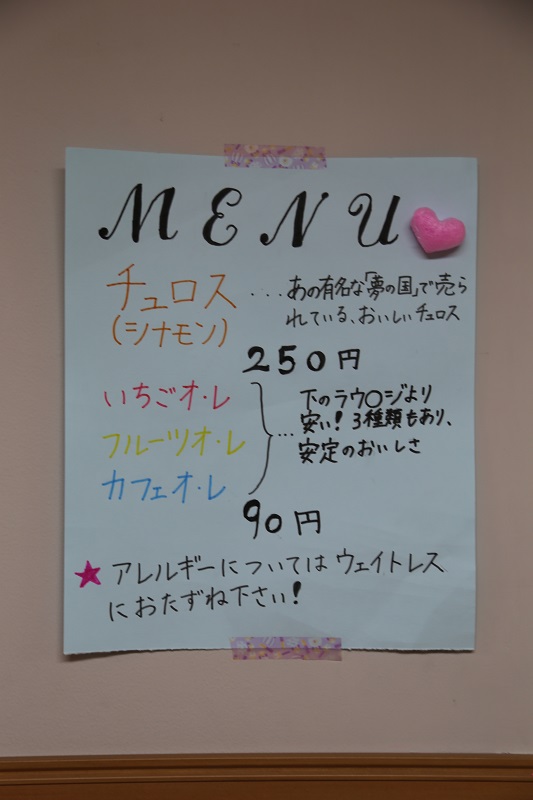 MENU
チュロス
(シナモン)
...あの有名な「夢の国」で売ら
れている、おいしいチュロス
250円
いちごオ・レ
フルーツオ・レ
カフェオ・レ
...下のラウ〇ジより
安い!3種類もあり、
安定のおいしさ
90円
★アレルギーについてはウェイトレス
におたずね下さい!